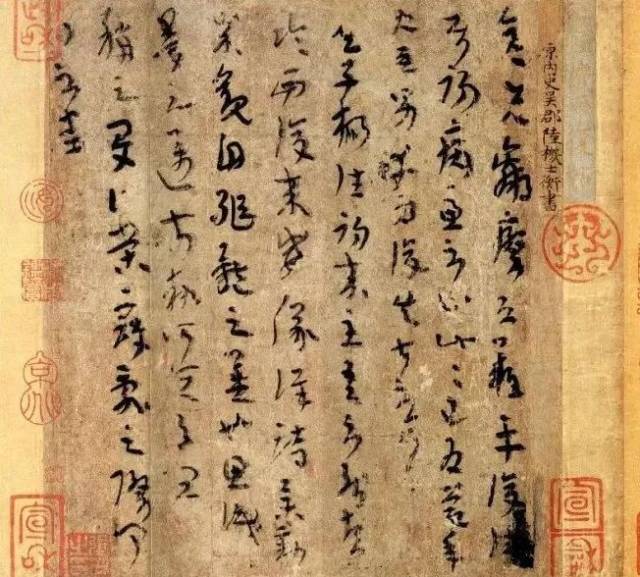 原內史吳郡陸機士衡書
彥先羸瘵恐難平復往屬
初病慮不止此此已為慶承
使唯男幸為復失前憂耳
吳子楊往初來主吾不能盡
臨西復來威儀詳跱舉動
成觀自軀體之美也思識
量之邁前執所恒有宜
稱之夏伯榮寇亂之際聞
問不悉
宣和